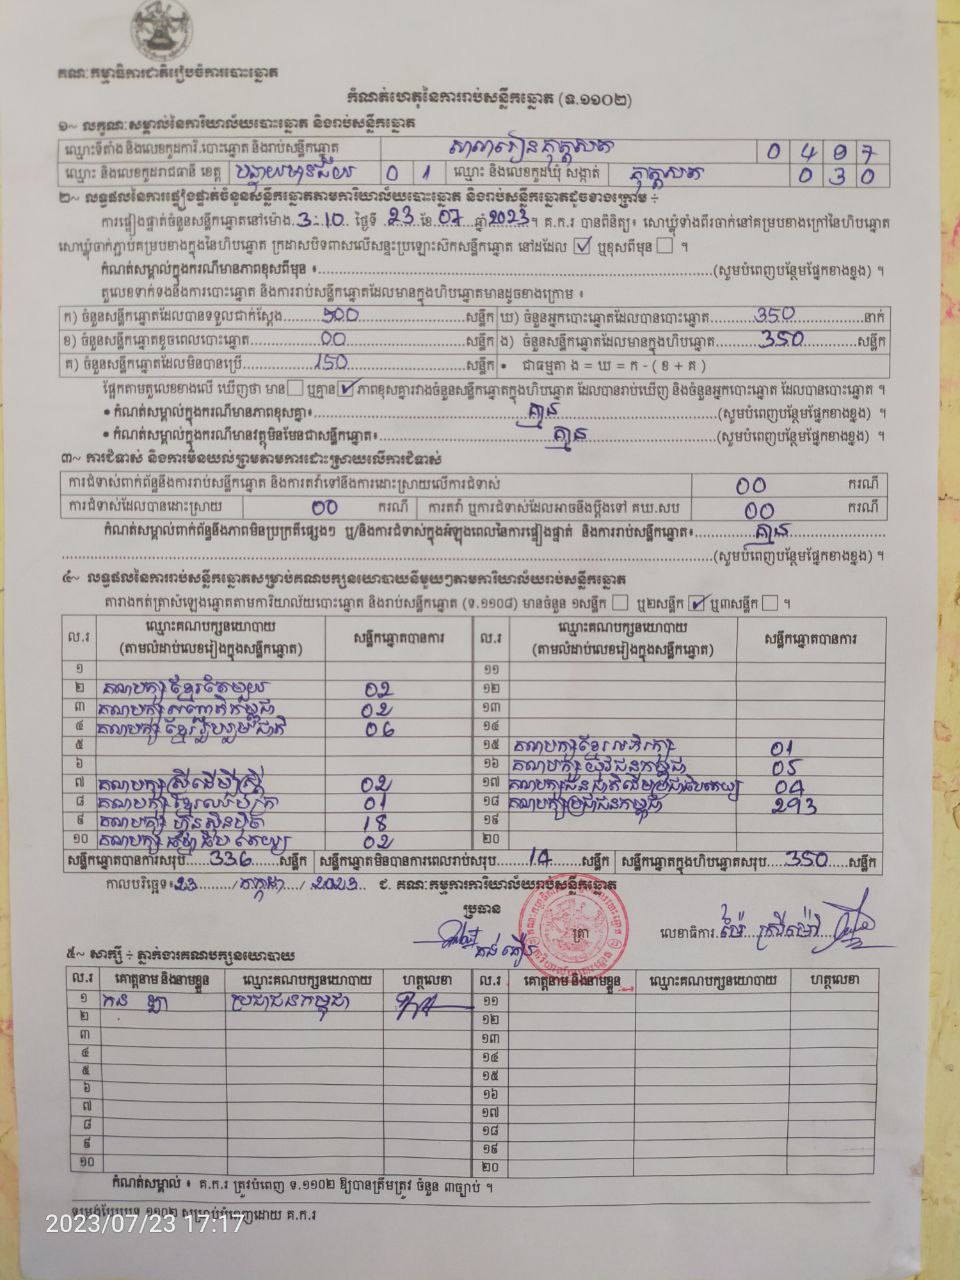 គណៈកម្មាធិការជាតិរៀបចំការបោះឆ្នោត
កំណត់ហេតុនៃការរាប់សន្លឹកឆ្នោត (ទ.១១០២)
១~ លក្ខណៈសម្គាល់នៃការិយាល័យបោះឆ្នោត និងរាប់សន្លឹកឆ្នោត
ឈ្មោះទីតាំង និងលេខកូដការិ.បោះឆ្នោត និងរាប់សន្លឹកឆ្នោត សាលារៀនគុត្តសត 0 4 9 7
ឈ្មោះ និងលេខកូដរាជធានី ខេត្ត បន្ទាយមានជ័យ 0 1 ឈ្មោះ និងលេខកូដឃុំ សង្កាត់ គុត្តសត 0 3 0
២~ លទ្ធផលនៃការផ្ទៀងផ្ទាត់ចំនួនសន្លឹកឆ្នោតតាមការិយាល័យបោះឆ្នោត និងរាប់សន្លឹកឆ្នោតដូចខាងក្រោម ÷
ការផ្ទៀងផ្ទាត់ចំនួនសន្លឹកឆ្នោតនៅម៉ោង 3:10 ថ្ងៃទី 23 ខែ 07 ឆ្នាំ 2023 ។ គ.ក.រ បានពិនិត្យ៖ សោឃ្លុំទាំងពីរចាក់នៅគម្របខាងក្រៅនៃហិបឆ្នោត
សោឃ្លុំចាក់ភ្ជាប់គម្របខាងក្នុងនៃហិបឆ្នោត ក្រដាសបិទពាសលើសន្ទះប្រឡោះសិកសន្លឹកឆ្នោត នៅដដែល ☑ ឬខុសពីមុន ☐ ។
កំណត់សម្គាល់ក្នុងករណីមានភាពខុសពីមុន ៖ (សូមបំពេញបន្ថែមផ្នែកខាងខ្នង) ។
តួលេខទាក់ទងនឹងការបោះឆ្នោត និងការរាប់សន្លឹកឆ្នោតដែលមានក្នុងហិបឆ្នោតមានដូចខាងក្រោម ៖
ក) ចំនួនសន្លឹកឆ្នោតដែលបានទទួលជាក់ស្តែង 500 សន្លឹក ឃ) ចំនួនអ្នកបោះឆ្នោតដែលបានបោះឆ្នោត 350 នាក់
ខ) ចំនួនសន្លឹកឆ្នោតខូចពេលបោះឆ្នោត 00 សន្លឹក ង) ចំនួនសន្លឹកឆ្នោតដែលមានក្នុងហិបឆ្នោត 350 សន្លឹក
គ) ចំនួនសន្លឹកឆ្នោតដែលមិនបានប្រើ 150 សន្លឹក • ជាធម្មតា ង = ឃ = ក - ( ខ + គ )
ផ្អែកតាមតួលេខខាងលើ ឃើញថា មាន ☐ ឬគ្មាន ☑ ភាពខុសគ្នារវាងចំនួនសន្លឹកឆ្នោតក្នុងហិបឆ្នោត ដែលបានរាប់ឃើញ និងចំនួនអ្នកបោះឆ្នោត ដែលបានបោះឆ្នោត ។
• កំណត់សម្គាល់ក្នុងករណីមានភាពខុសគ្នា៖ គ្មាន (សូមបំពេញបន្ថែមផ្នែកខាងខ្នង) ។
• កំណត់សម្គាល់ក្នុងករណីមានវត្ថុមិនមែនជាសន្លឹកឆ្នោត៖ គ្មាន (សូមបំពេញបន្ថែមផ្នែកខាងខ្នង) ។
៣~ ការជំទាស់ និងការមិនយល់ព្រមតាមការដោះស្រាយលើការជំទាស់
ការជំទាស់ពាក់ព័ន្ធនឹងការរាប់សន្លឹកឆ្នោត និងការតវ៉ាទៅនឹងការដោះស្រាយលើការជំទាស់ 00 ករណី
ការជំទាស់ដែលបានដោះស្រាយ 00 ករណី ការតវ៉ា ឬការជំទាស់ដែលអាចនឹងប្តឹងទៅ គឃ.សប 00 ករណី
កំណត់សម្គាល់ពាក់ព័ន្ធនឹងភាពមិនប្រក្រតីផ្សេងៗ ឬ/និងការជំទាស់ក្នុងអំឡុងពេលនៃការផ្ទៀងផ្ទាត់ និងការរាប់សន្លឹកឆ្នោត៖ គ្មាន
(សូមបំពេញបន្ថែមផ្នែកខាងខ្នង) ។
៤~ លទ្ធផលនៃការរាប់សន្លឹកឆ្នោតសម្រាប់គណបក្សនយោបាយនីមួយៗតាមការិយាល័យរាប់សន្លឹកឆ្នោត
តារាងកត់ត្រាសំឡេងឆ្នោតតាមការិយាល័យបោះឆ្នោត និងរាប់សន្លឹកឆ្នោត (ទ.១១០៨) មានចំនួន ១សន្លឹក ☐ ឬ២សន្លឹក ☑ ឬ៣សន្លឹក ☐ ។
ល.រ ឈ្មោះគណបក្សនយោបាយ (តាមលំដាប់លេខរៀងក្នុងសន្លឹកឆ្នោត) សន្លឹកឆ្នោតបានការ ល.រ ឈ្មោះគណបក្សនយោបាយ (តាមលំដាប់លេខរៀងក្នុងសន្លឹកឆ្នោត) សន្លឹកឆ្នោតបានការ
១ ១១
២ គណបក្សខ្មែរតែមួយ 02 ១២
៣ គណបក្ស សញ្ជាតិកម្ពុជា 02 ១៣
៤ គណបក្ស ខ្មែររួបរួមជាតិ 06 ១៤
៥ ១៥ គណបក្សខ្មែរអភិរក្ស 01
៦ ១៦ គណបក្ស យុវជនកម្ពុជា 05
៧ គណបក្សស្រីដើម្បីស្ត្រី 02 ១៧ គណបក្សជនជាតិដើមប្រជាធិបតេយ្យ 04
៨ គណបក្ស ខ្មែរឈប់ក្រ 01 ១៨ គណបក្សប្រជាជនកម្ពុជា 293
៩ គណបក្ស ហ្វ៊ុនស៊ិនប៉ិច 18 ១៩
១០ គណបក្ស ធម្មាធិបតេយ្យ 02 ២០
សន្លឹកឆ្នោតបានការសរុប 336 សន្លឹក សន្លឹកឆ្នោតមិនបានការពេលរាប់សរុប 14 សន្លឹក សន្លឹកឆ្នោតក្នុងហិបឆ្នោតសរុប 350 សន្លឹក
កាលបរិច្ឆេទ៖ 23 / កក្កដា / 2023 ជ. គណៈកម្មការការិយាល័យរាប់សន្លឹកឆ្នោត
ប្រធាន ត្រា លេខាធិការ
៥~ សាក្សី ÷ ភ្នាក់ងារគណបក្សនយោបាយ
ល.រ គោត្តនាម និងនាមខ្លួន ឈ្មោះគណបក្សនយោបាយ ហត្ថលេខា ល.រ គោត្តនាម និងនាមខ្លួន ឈ្មោះគណបក្សនយោបាយ ហត្ថលេខា
១ កន ឡា ប្រជាជនកម្ពុជា ១១
២ ១២
៣ ១៣
៤ ១៤
៥ ១៥
៦ ១៦
៧ ១៧
៨ ១៨
៩ ១៩
១០ ២០
កំណត់សម្គាល់ ៖ គ.ក.រ ត្រូវបំពេញ ទ.១១០២ ឱ្យបានត្រឹមត្រូវ ចំនួន ៣ច្បាប់ ។
ទម្រង់បែបបទ ១១០២ សម្រាប់បំពេញដោយ គ.ក.រ
2023/07/23 17:17